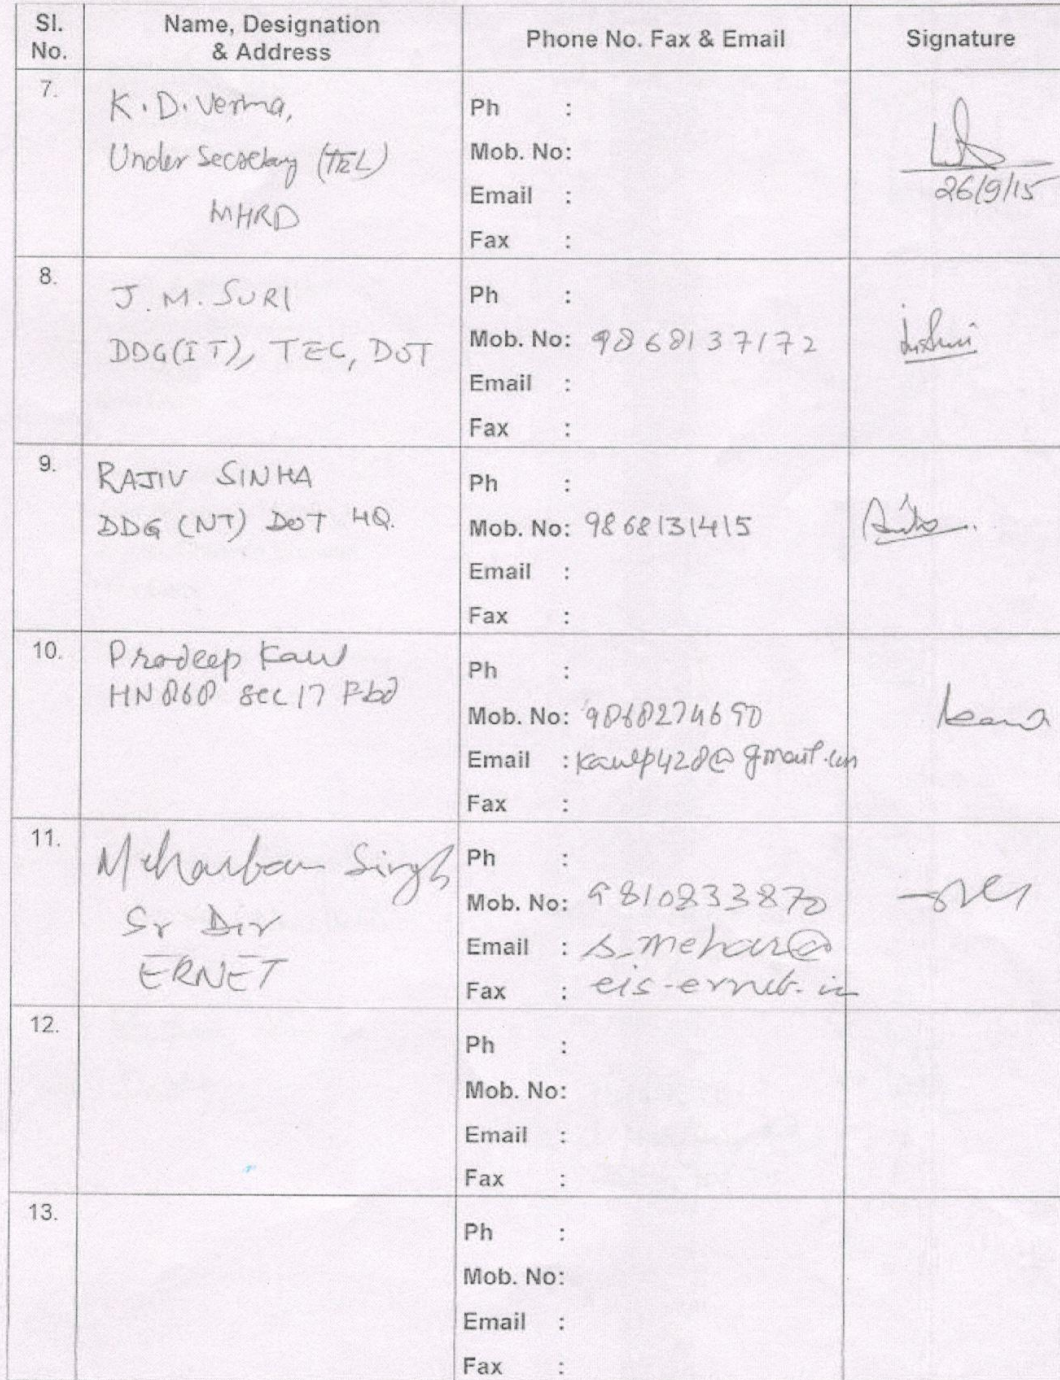 Sl. No. Name, Designation & Address Phone No. Fax & Email Signature
7. K.D. Verma,
Under Secretary (TEL)
MHRD
Ph :
Mob. No:
Email :
Fax :
26/9/15
8. J.M. SURI
DDG(IT), TEC, DOT
Ph :
Mob. No: 9868137172
Email :
Fax :
9. RAJIV SINHA
DDG (NT) DOT HQ.
Ph :
Mob. No: 9868131415
Email :
Fax :
10. Pradeep Kaul
HN 868 Sec 17 Fbd
Ph :
Mob. No: 9868274690
Email : kaulp428@gmail.com
Fax :
11. Meharban Singh
Sr Dir
ERNET
Ph :
Mob. No: 9810833870
Email : s_mehar@
Fax : eis.ernet.in
12.
Ph :
Mob. No:
Email :
Fax :
13.
Ph :
Mob. No:
Email :
Fax :